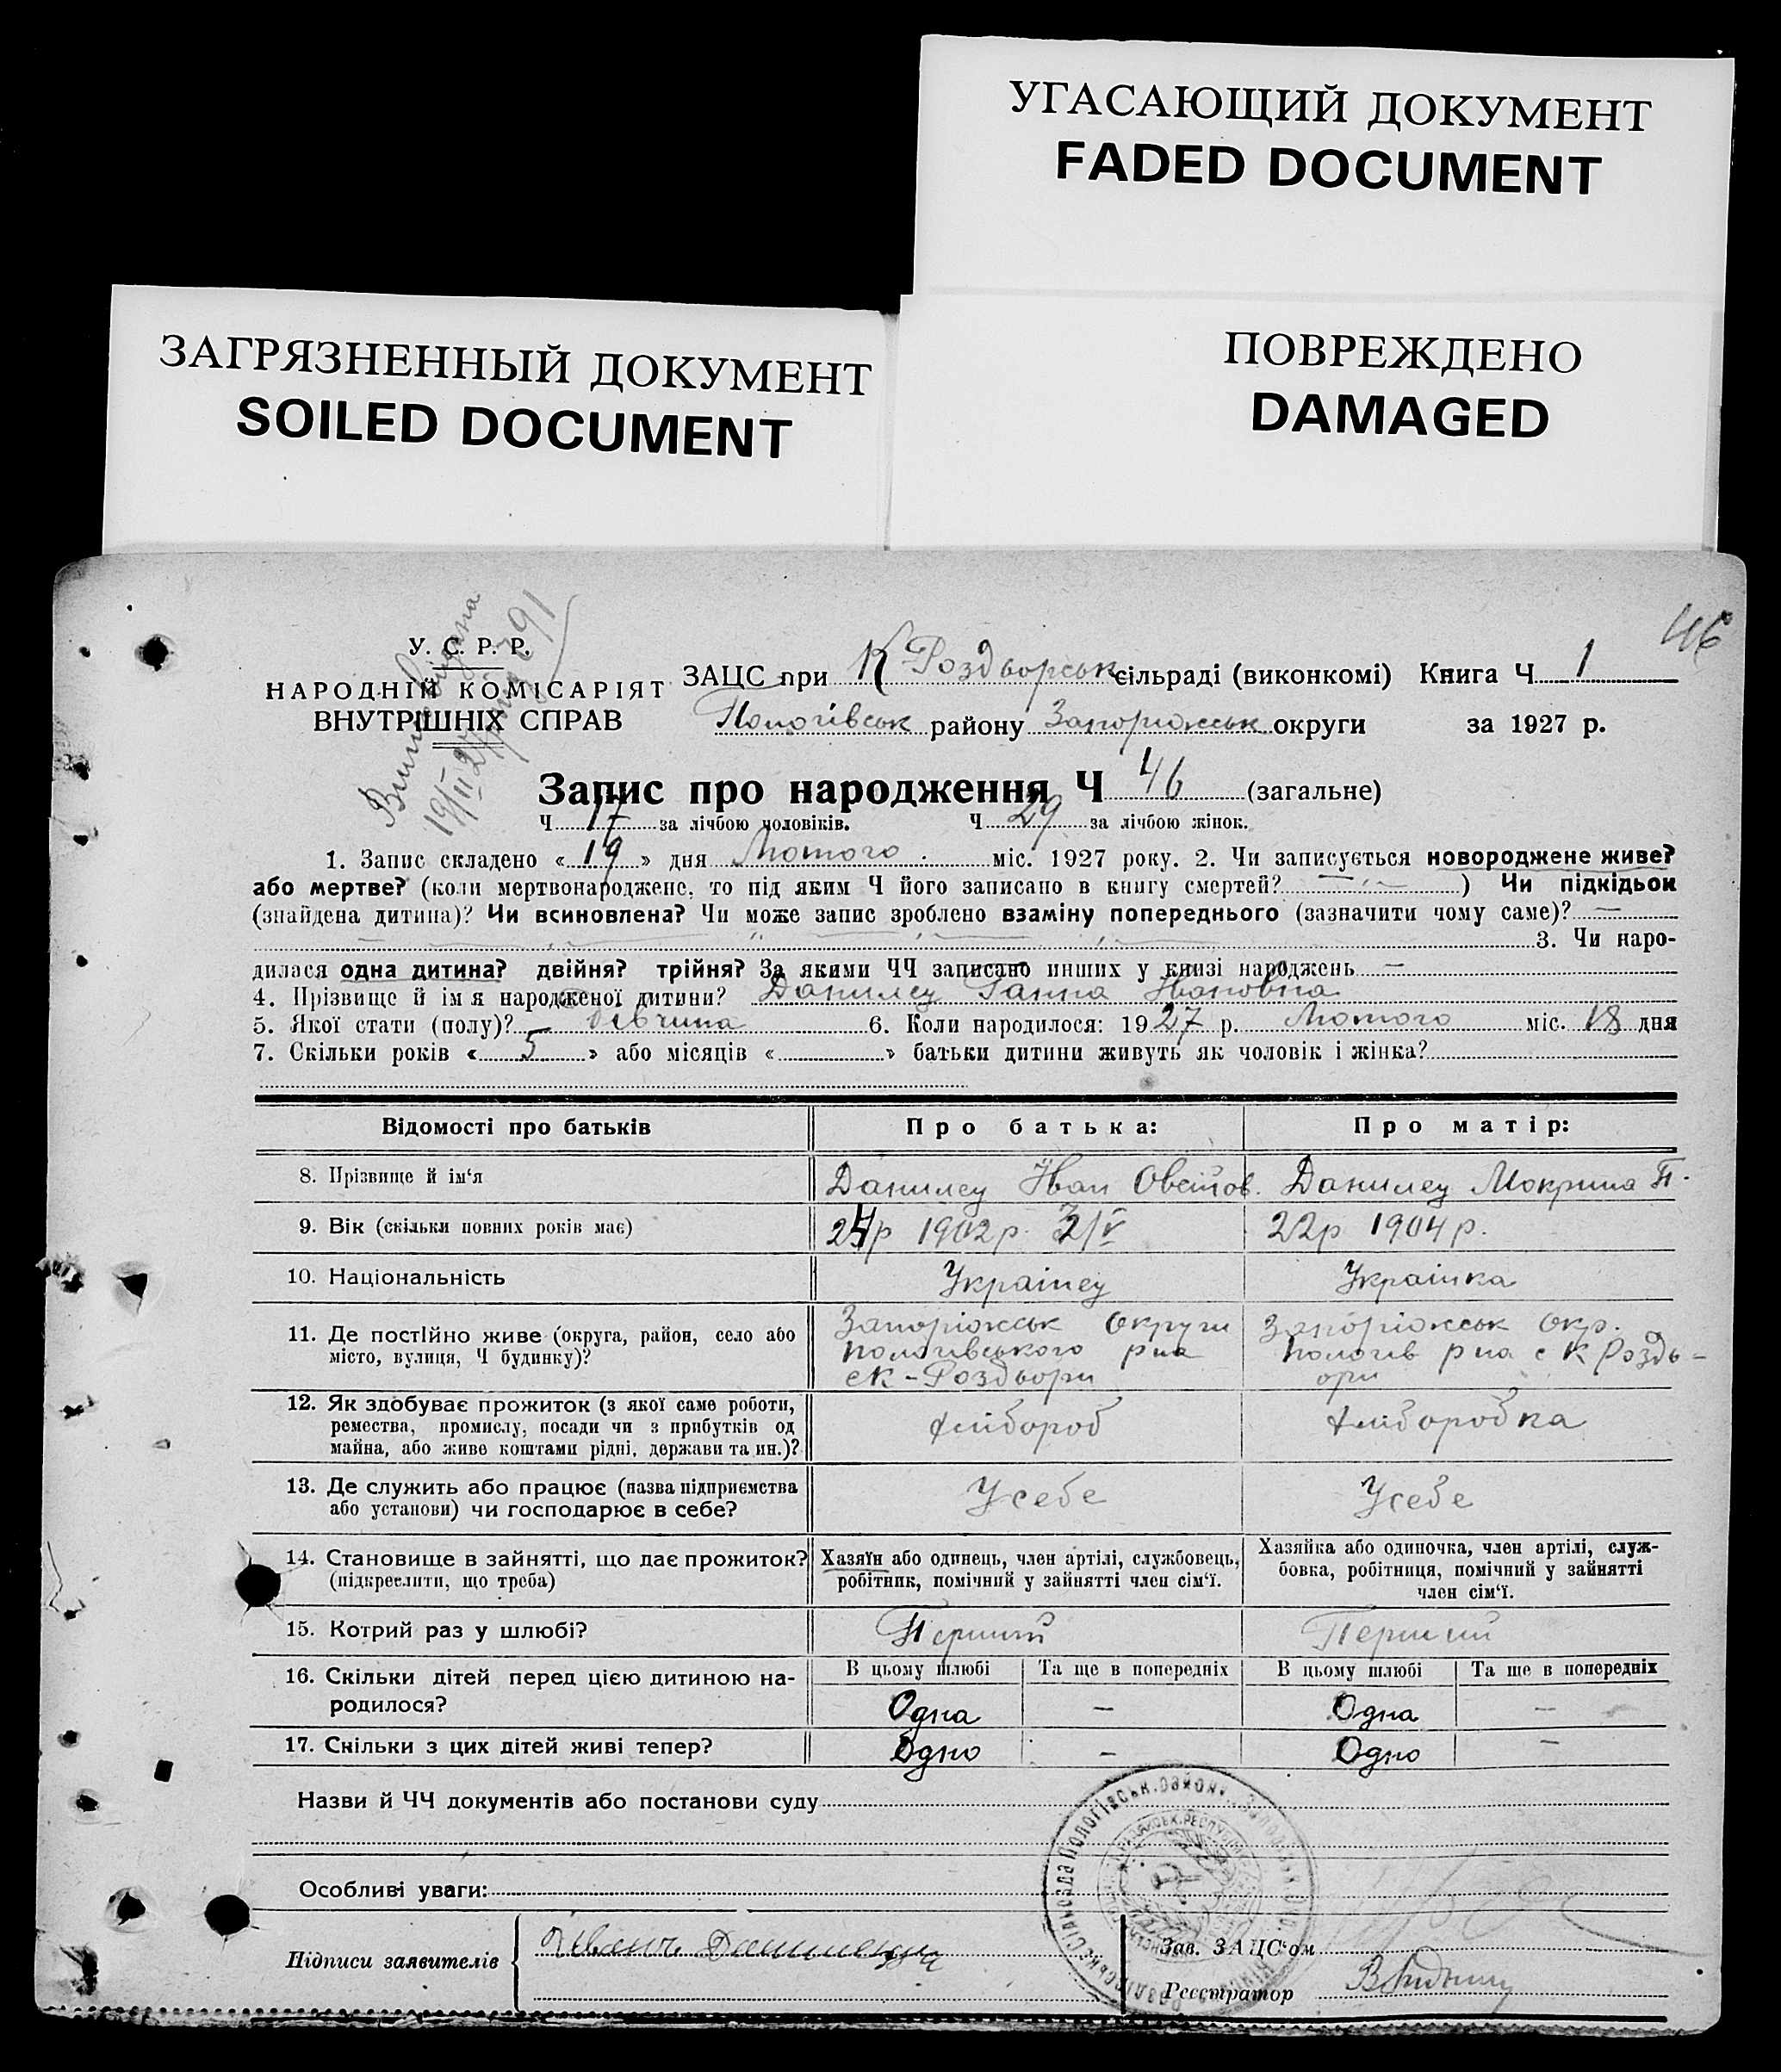 УГАСАЮЩИЙ ДОКУМЕНТ
FADED DOCUMENT
ЗАГРЯЗНЕННЫЙ ДОКУМЕНТ
SOILED DOCUMENT
ПОВРЕЖДЕНО
DAMAGED
46
У. С. Р. Р.
НАРОДНІЙ КОМІСАРІЯТ
ВНУТРІШНІХ СПРАВ
ЗАЦС при К Роздорськ сільраді (виконкомі) Книга Ч 1
Пологівськ району Запоріжськ округи за 1927 р.
Запис про народження Ч 46 (загальне)
Ч 17 за лічбою чоловіків. Ч 29 за лічбою жінок.
1. Запис складено « 19 » дня Лютого міс. 1927 року. 2. Чи записується новороджене живе?
або мертве? (коли мертвонароджене, то під яким Ч його записано в книгу смертей? — ) Чи підкідьок
(знайдена дитина)? Чи всиновлена? Чи може запис зроблено взаміну попереднього (зазначити чому саме)? —
3. Чи наро-
дилася одна дитина? двійня? трійня? За якими ЧЧ записано инших у книзі народжень —
4. Прізвище й ім'я народженої дитини? Данилец Ганна Івановна
5. Якої стати (полу)? дівчина 6. Коли народилося: 1927 р. Лютого міс. 18 дня
7. Скільки років « 5 » або місяців « » батьки дитини живуть як чоловік і жінка?
Відомості про батьків Про батька: Про матір:
8. Прізвище й ім'я Данилец Іван Данилец Мокрина П.
9. Вік (скільки повних років має) 24р 1902р. 22р 1904р.
10. Національність Українец Українка
11. Де постійно живе (округа, район, село або місто, вулиця, Ч будинку)?
Запоріжськ Округи Запоріжськ Окр.
Пологівського р на Пологів р на с К Роздь-
с К-Роздьори ори
12. Як здобуває прожиток (з якої саме роботи,
ремества, промислу, посади чи з прибутків од
майна, або живе коштами рідні, держави та ин.)?
хлібороб хліборобка
13. Де служить або працює (назва підприємства
або установи) чи господарює в себе?
Усебе Усебе
14. Становище в зайнятті, що дає прожиток?
(підкреслити, що треба)
Хазяїн або одинець, член артілі, службовець,
робітник, помічний у зайнятті член сім'ї.
Хазяйка або одиночка, член артілі, служ-
бовка, робітниця, помічний у зайнятті
член сім'ї.
15. Котрий раз у шлюбі? Перший Перший
16. Скільки дітей перед цією дитиною на-
родилося?
В цьому шлюбі Та ще в попередніх В цьому шлюбі Та ще в попередніх
Одна — Одна —
17. Скільки з цих дітей живі тепер? Одно — Одно —
Назви й ЧЧ документів або постанови суду
Особливі уваги:
Підписи заявителів
Зав. ЗАЦС'ом
Реєстратор